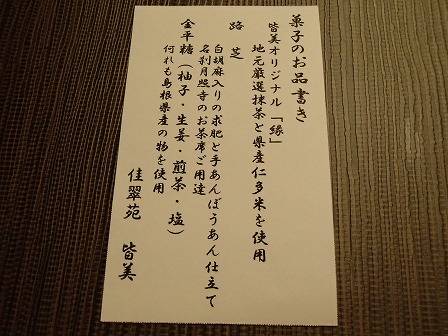 菓子のお品書き
皆美オリジナル「縁」
地元厳選抹茶と県産仁多米を使用
路芝
白胡麻入りの求肥と手あんぼうあん仕立て
名刹月照寺のお茶席ご用達
金平糖（柚子・生姜・煎茶・塩）
何れも島根県産の物を使用
佳翠苑 皆美